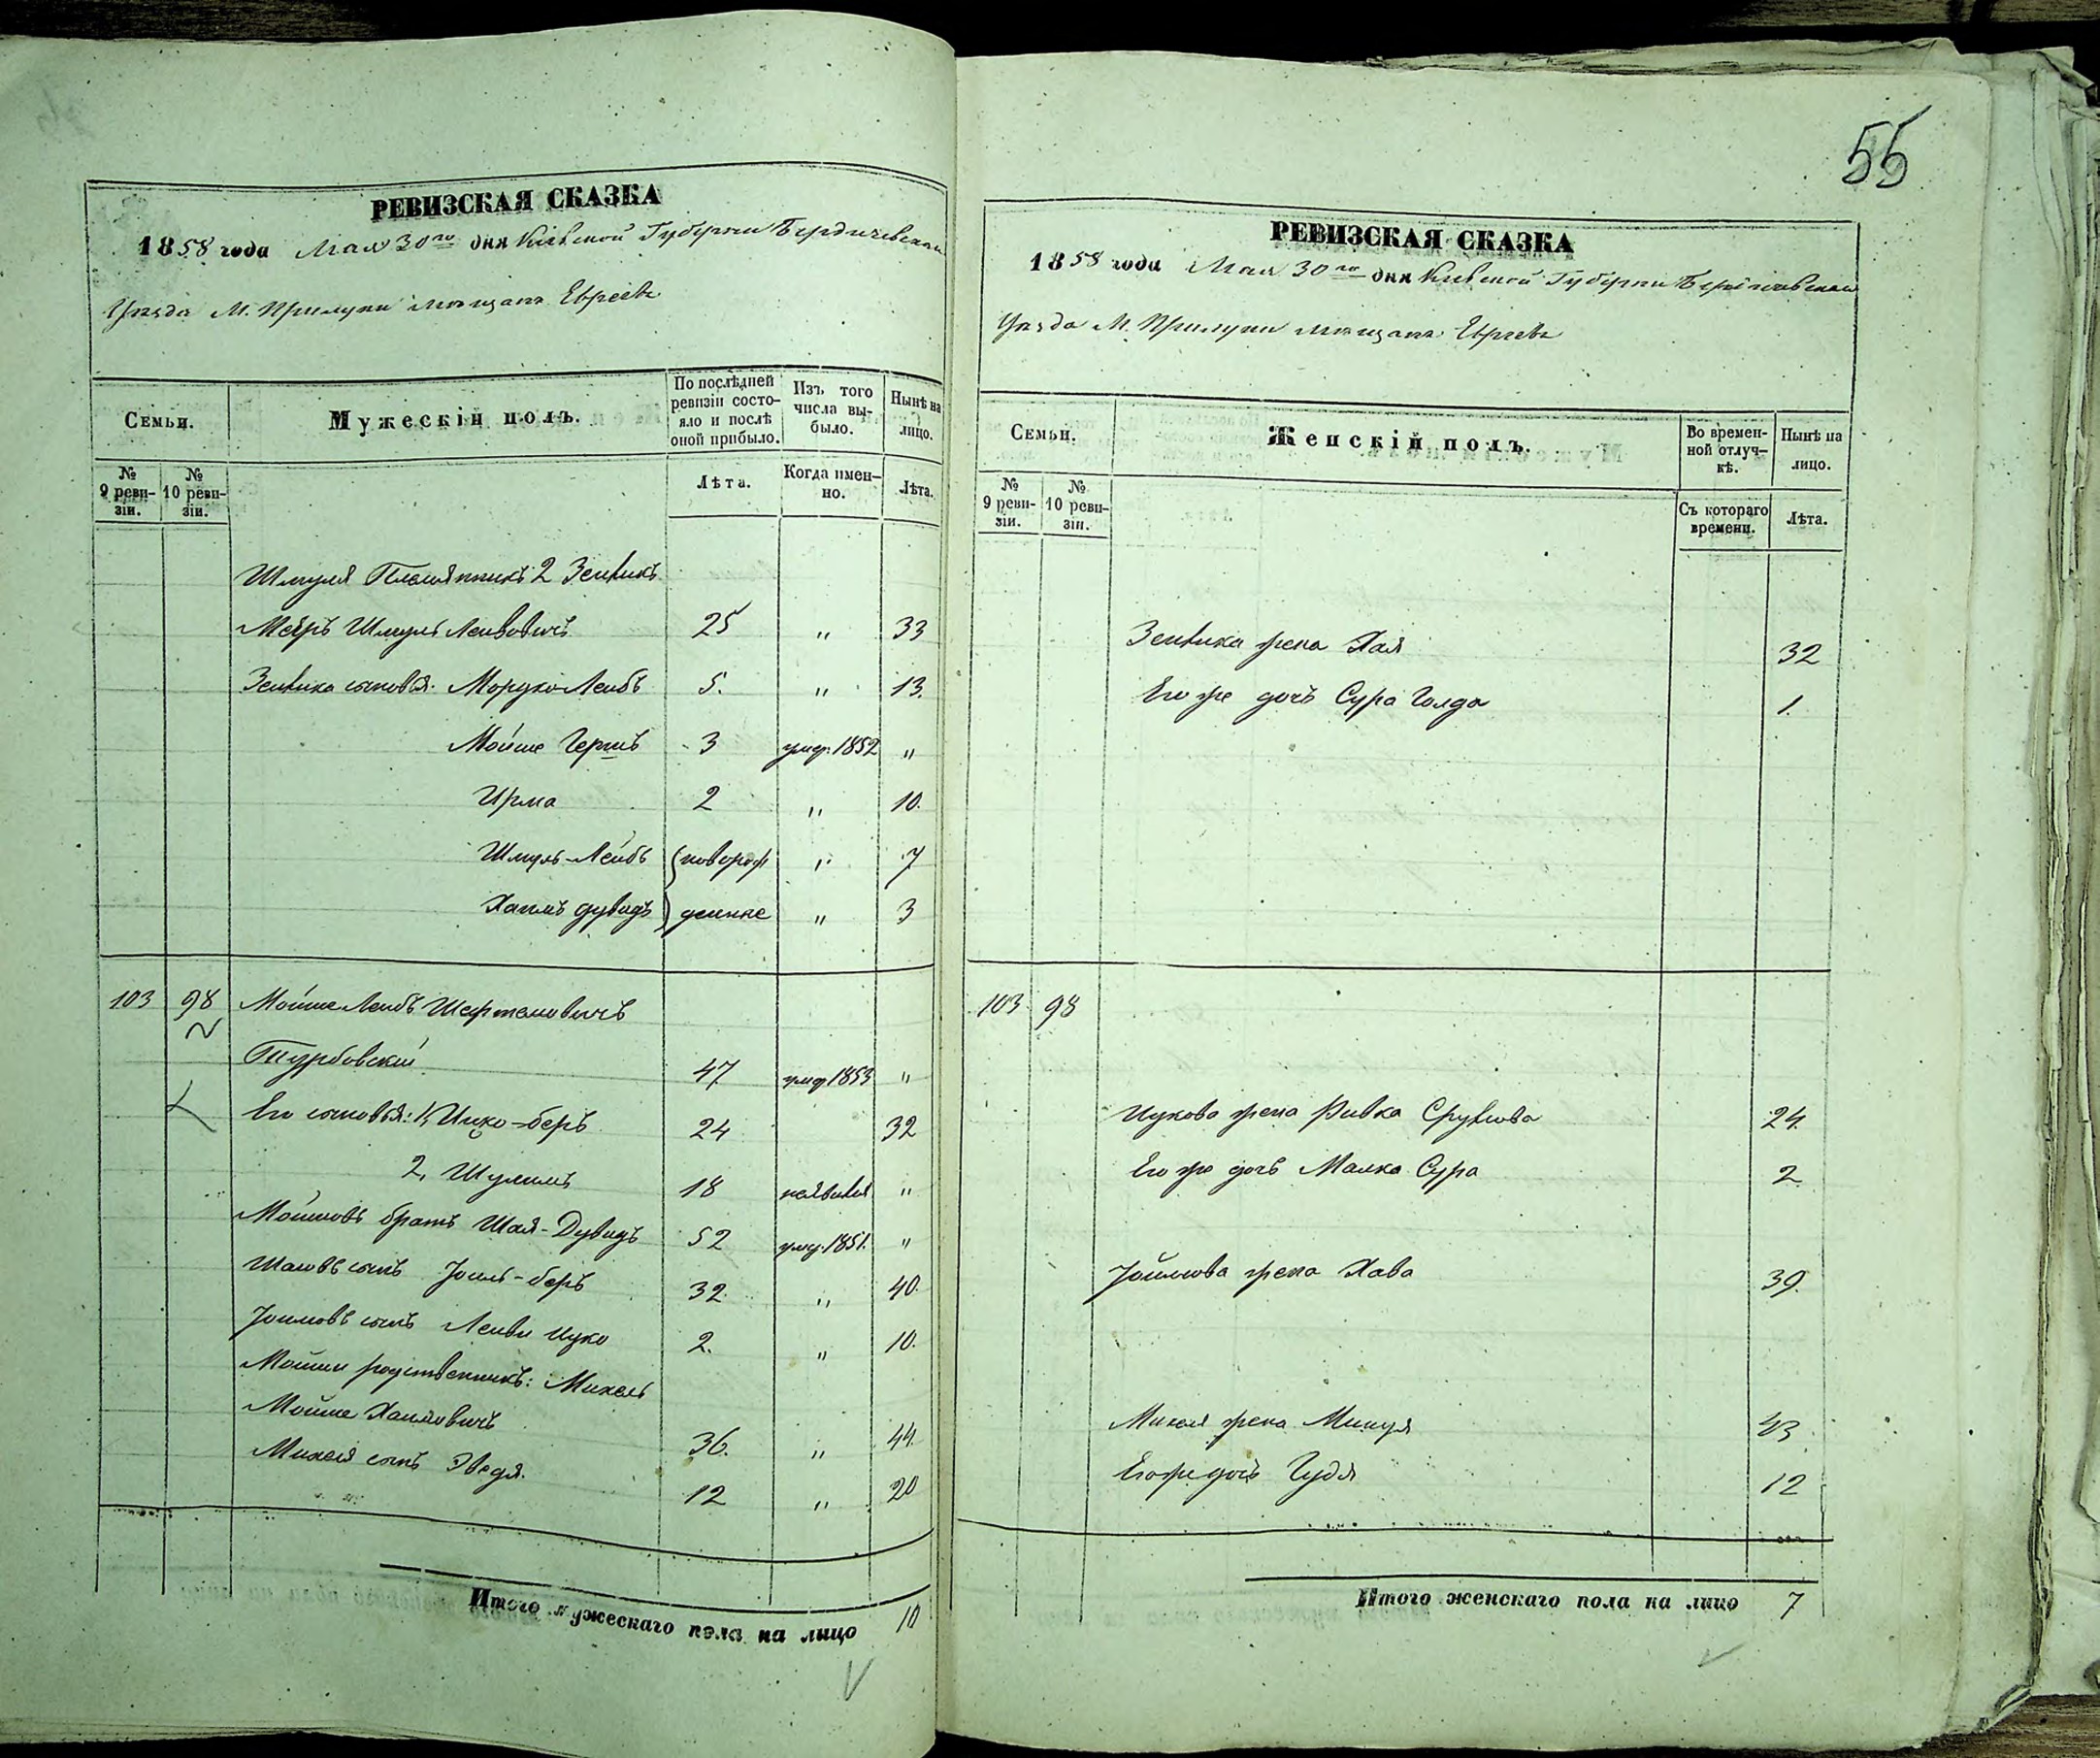 55
РЕВИЗСКАЯ СКАЗКА
1858 года Мая 30го дня Кіевской Губерніи Бердичевскаго
Уѣзда М. Прилуки мѣщанъ Евреевъ
Семьи.
Мужескій полъ.
По послѣдней ревизіи состояло и послѣ оной прибыло.
Изъ того числа выбыло.
Нынѣ на лицо.
№ 9 ревизіи.
№ 10 ревизіи.
Лѣта.
Когда именно.
Лѣта.
Шмуля Племянникъ 2 Зейликъ
Меѣръ Шмуль Лейбовичъ 25 " 33
Зейлика сыновья. Мордко Лейбъ 5. " 13.
Мойше Гершъ 3 умер. 1852 "
Ирма 2 " 10.
Шмуль-Лейбъ (новорож " 7
Хаимъ дувидъ) денные " 3
103 98 Мойше Лейбъ Шефтелевичъ
Турбовскій 47 умер 1853 "
Его сыновья: 1, Ицко-беръ 24 32
2, Шулимъ 18 неявился "
Мошковъ братъ Шая-Дувидъ 52 умер. 1851. "
Шаевъ сынъ Іоиль-беръ 32. " 40.
Іоиловъ сынъ Лейви Ицко 2. " 10.
Мошки родственникъ: Михель
Мойше Хаимовичъ 36. " 44.
Михеля сынъ Эведя. 12 " 20
Итого мужескаго пола на лицо 10
РЕВИЗСКАЯ СКАЗКА
1858 года Мая 30го дня Кіевской Губерніи Бердичевскаго
Уѣзда М. Прилуки мѣщанъ Евреевъ
Семьи.
Женскій полъ.
Во временной отлучкѣ.
Нынѣ на лицо.
№ 9 ревизіи.
№ 10 ревизіи.
Съ котораго времени.
Лѣта.
Зейлика жена Хая 32
Его же дочь Сура Голда 1.
103 98
Ицкова жена Ривка Срулиова 24.
Его же дочь Малка Сура 2
Іойлиова жена Хава 39.
Михеля жена Минця 43
Его же дочь Гудя 12
Итого женскаго пола на лицо 7